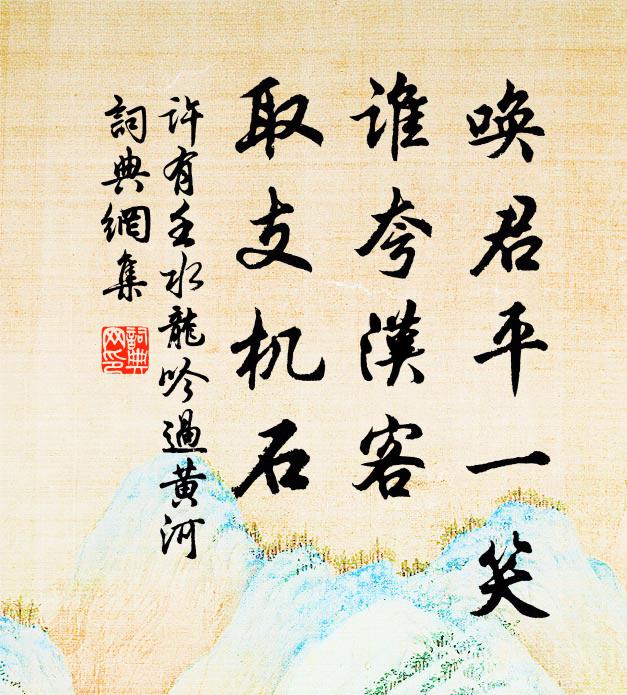 唤君平一笑
谁夸漢客
取支机石
许有壬水龍吟過黄河
詞典網集
詞典网印